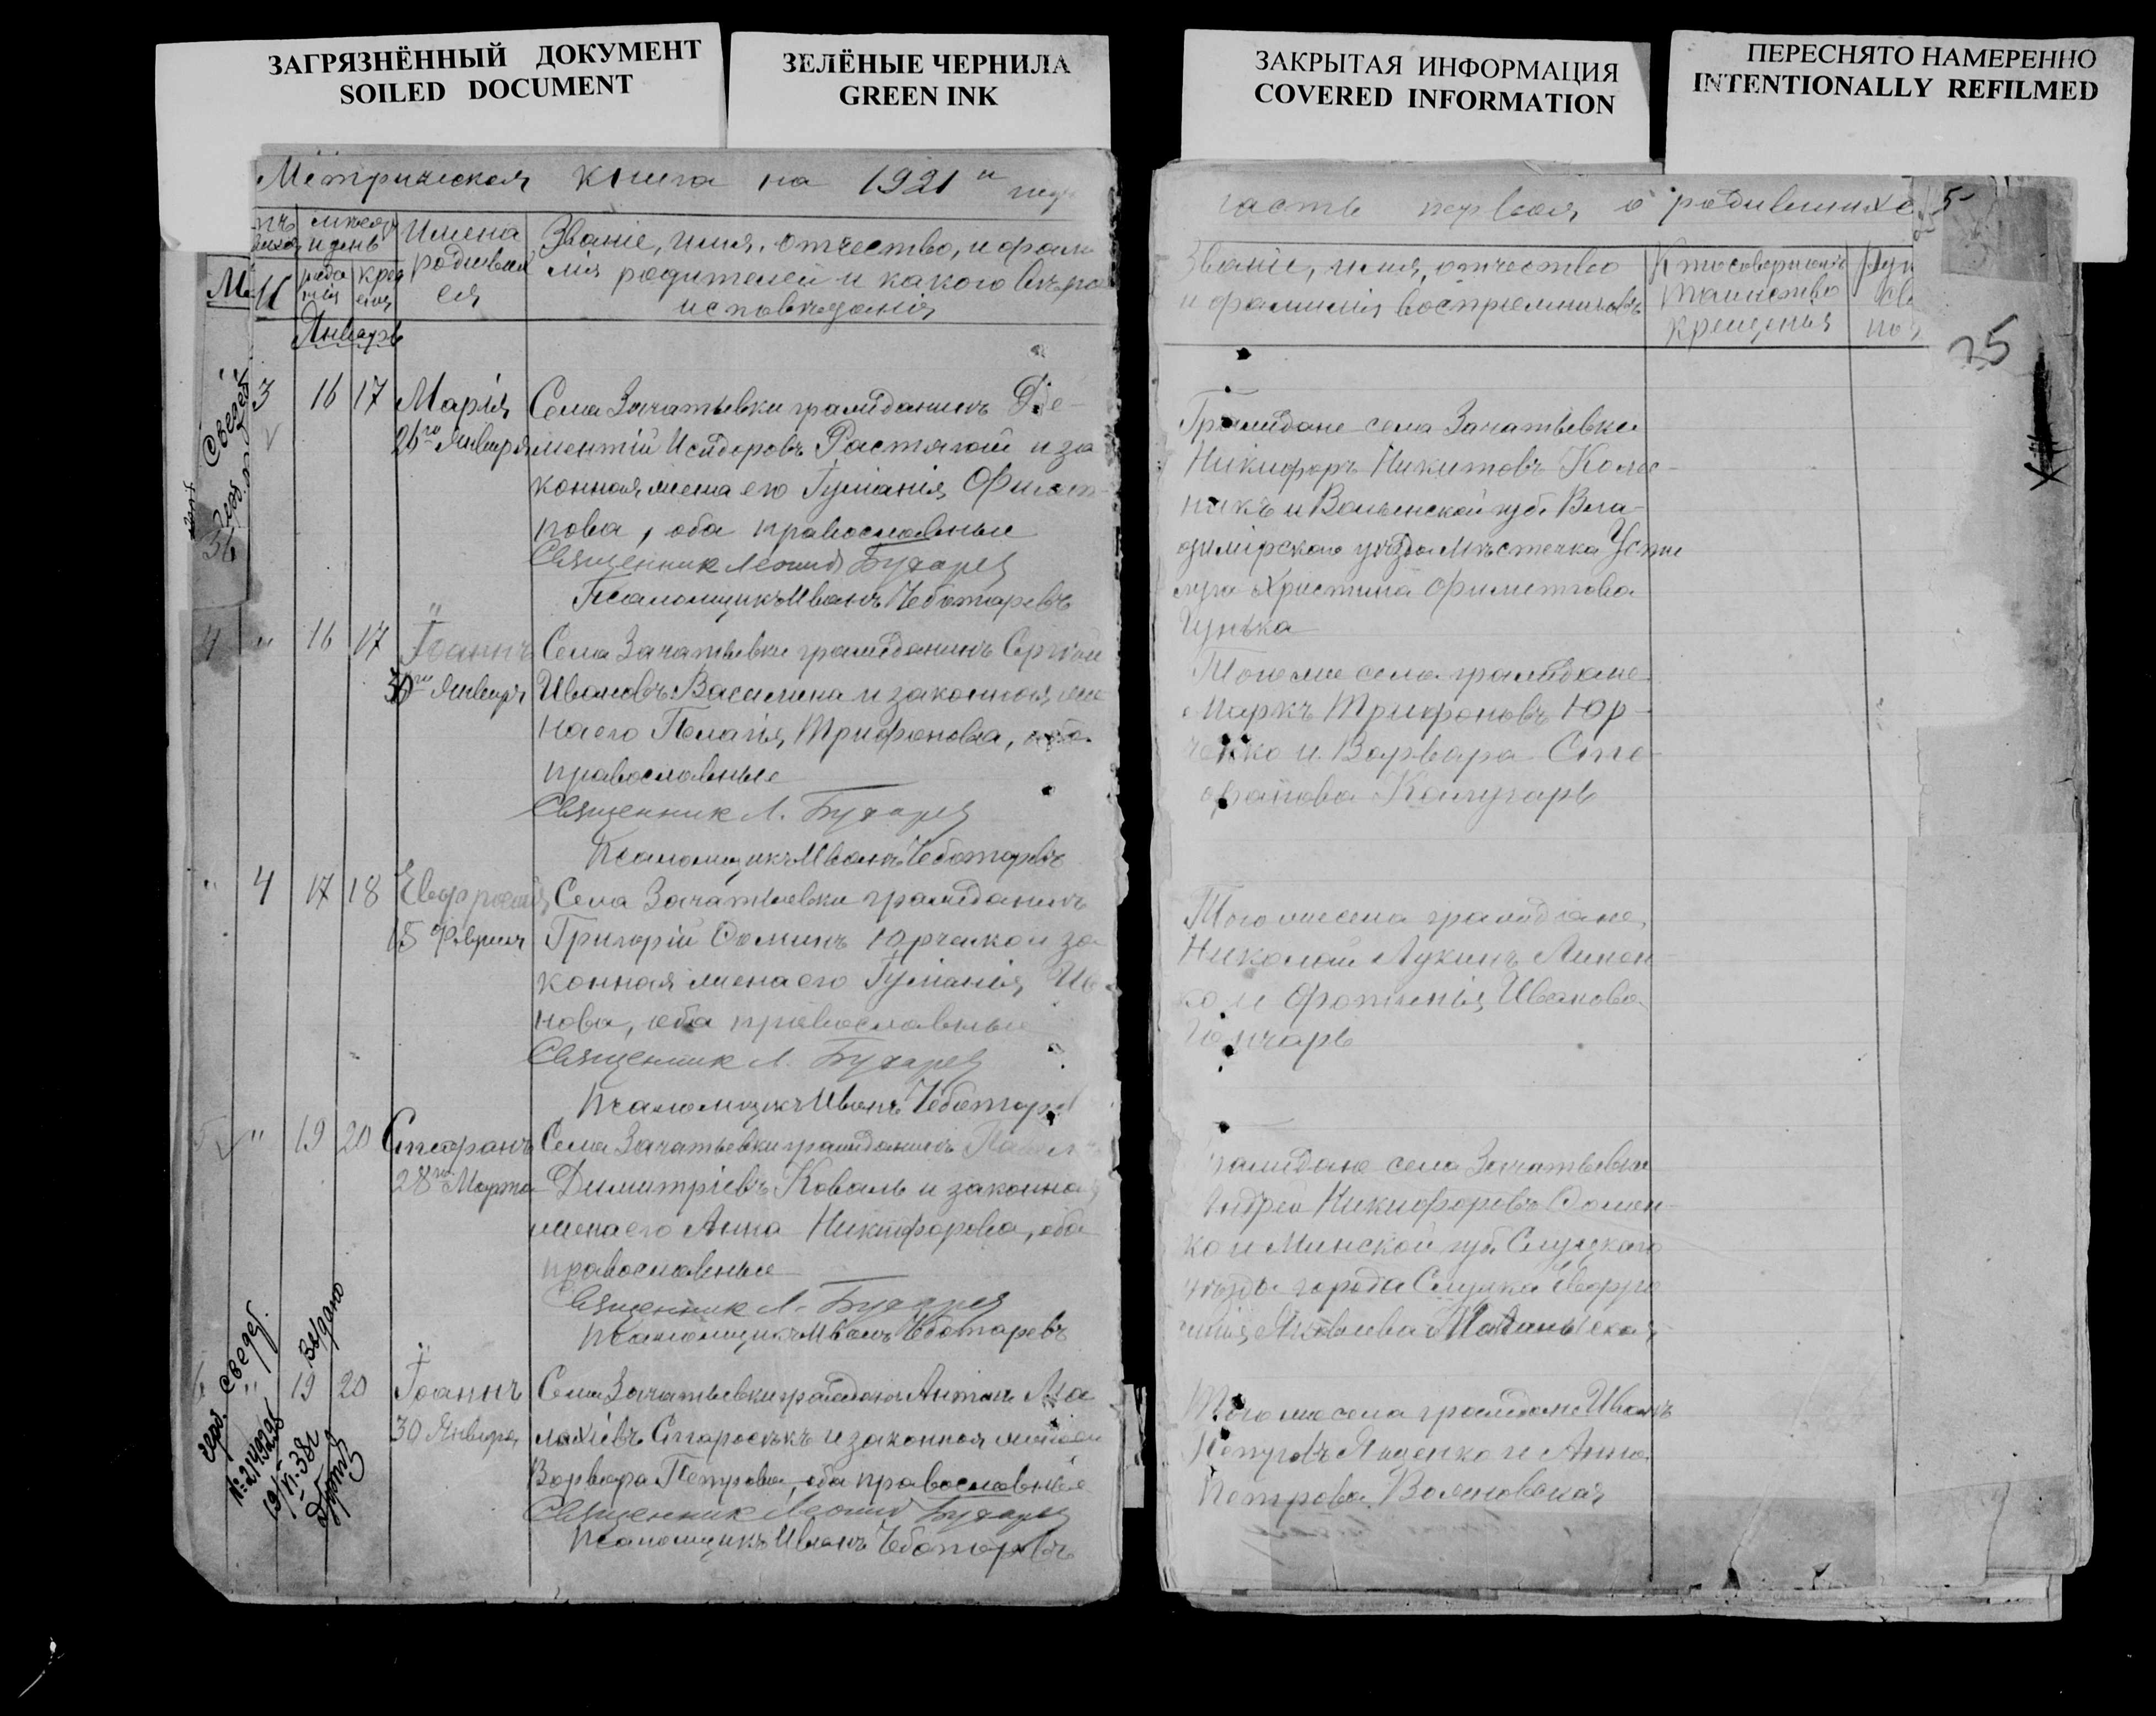 ЗАГРЯЗНЁННЫЙ ДОКУМЕНТ
SOILED DOCUMENT
ЗЕЛЁНЫЕ ЧЕРНИЛА
GREEN INK
ЗАКРЫТАЯ ИНФОРМАЦИЯ
COVERED INFORMATION
ПЕРЕСНЯТО НАМЕРЕННО
INTENTIONALLY REFILMED
Метрическая книга на 1921 й годъ
М
имена
родивших
ся
Званіе, имя, отчество, и фами
лія родителей и какого вѣро
исповѣданія
Январь
3 16 17 Марія
26го Января
Села Зачатьевки гражданинъ Де-
ментій Исидоровъ Растягай и за
конная жена его Іуліанія Филип-
пова, оба православные
Священник Леонид Бухарев
Псаломщикъ Иванъ Чеботаревъ
4 " 16 17 Іоаннъ
30го Января
Села Зачатьевки гражданинъ Сергѣй
Ивановъ Василина и законная же
на его Пелагія Трифонова, оба
православные
Священник Л. Бухарев
Псаломщикъ Иванъ Чеботаревъ
4 17 18 Евфросинія
15 Февраля
Села Зачатьевки гражданинъ
Григорій Ѳоминъ Юрченко и за
конная жена его Іуліанія Ив
нова, оба православные
Священник Л. Бухарев
Псаломщикъ Иванъ Чеботарев
5 " 19 20 Стефанъ
28го Марта
Села Зачатьевки гражданинъ Павел
Димитріевъ Коваль и законная
жена его Анна Никифорова, оба
православные
Священник Л. Бухарев
Псаломщикъ Иванъ Чеботаревъ
6 " 19 20 Іоаннъ
30 Января
Села Зачатьевки граждан Антонъ Ма
лахіевъ Старосѣкъ и законная жена его
Варвара Петрова, оба православные
Священник Леонид Бухарев
Псаломщикъ Иванъ Чеботаревъ
Сведет.
36
Сведет.
Выдано
часть первая о родившихся
5
25
Званіе, имя, отчество
и фамилія воспріемниковъ
Кто совершалъ
таинство
крещенія
Граждане села Зачатьевки
Никифоръ Никитовъ Колес-
никъ и Волынской губ. Вла-
димірскаго уѣзда мѣстечка Усти
луга Христина Филиппова
Того же села граждане
Маркъ Трифоновъ Юр-
ченко и Варвара Сте-
фанова
Того же села граждане
Николай Лукинъ Линен
ко и Фотинія Иванова
Гончаръ
Граждане села Зачатьевки
Андрей Никифоровъ Ѳомен-
ко и Минской губ. Слуцкаго
уѣзда города Слуцка Евфро
синія Яковлева
Того же села граждане Иванъ
Петровъ Яценко и Анна
Петрова Волновская